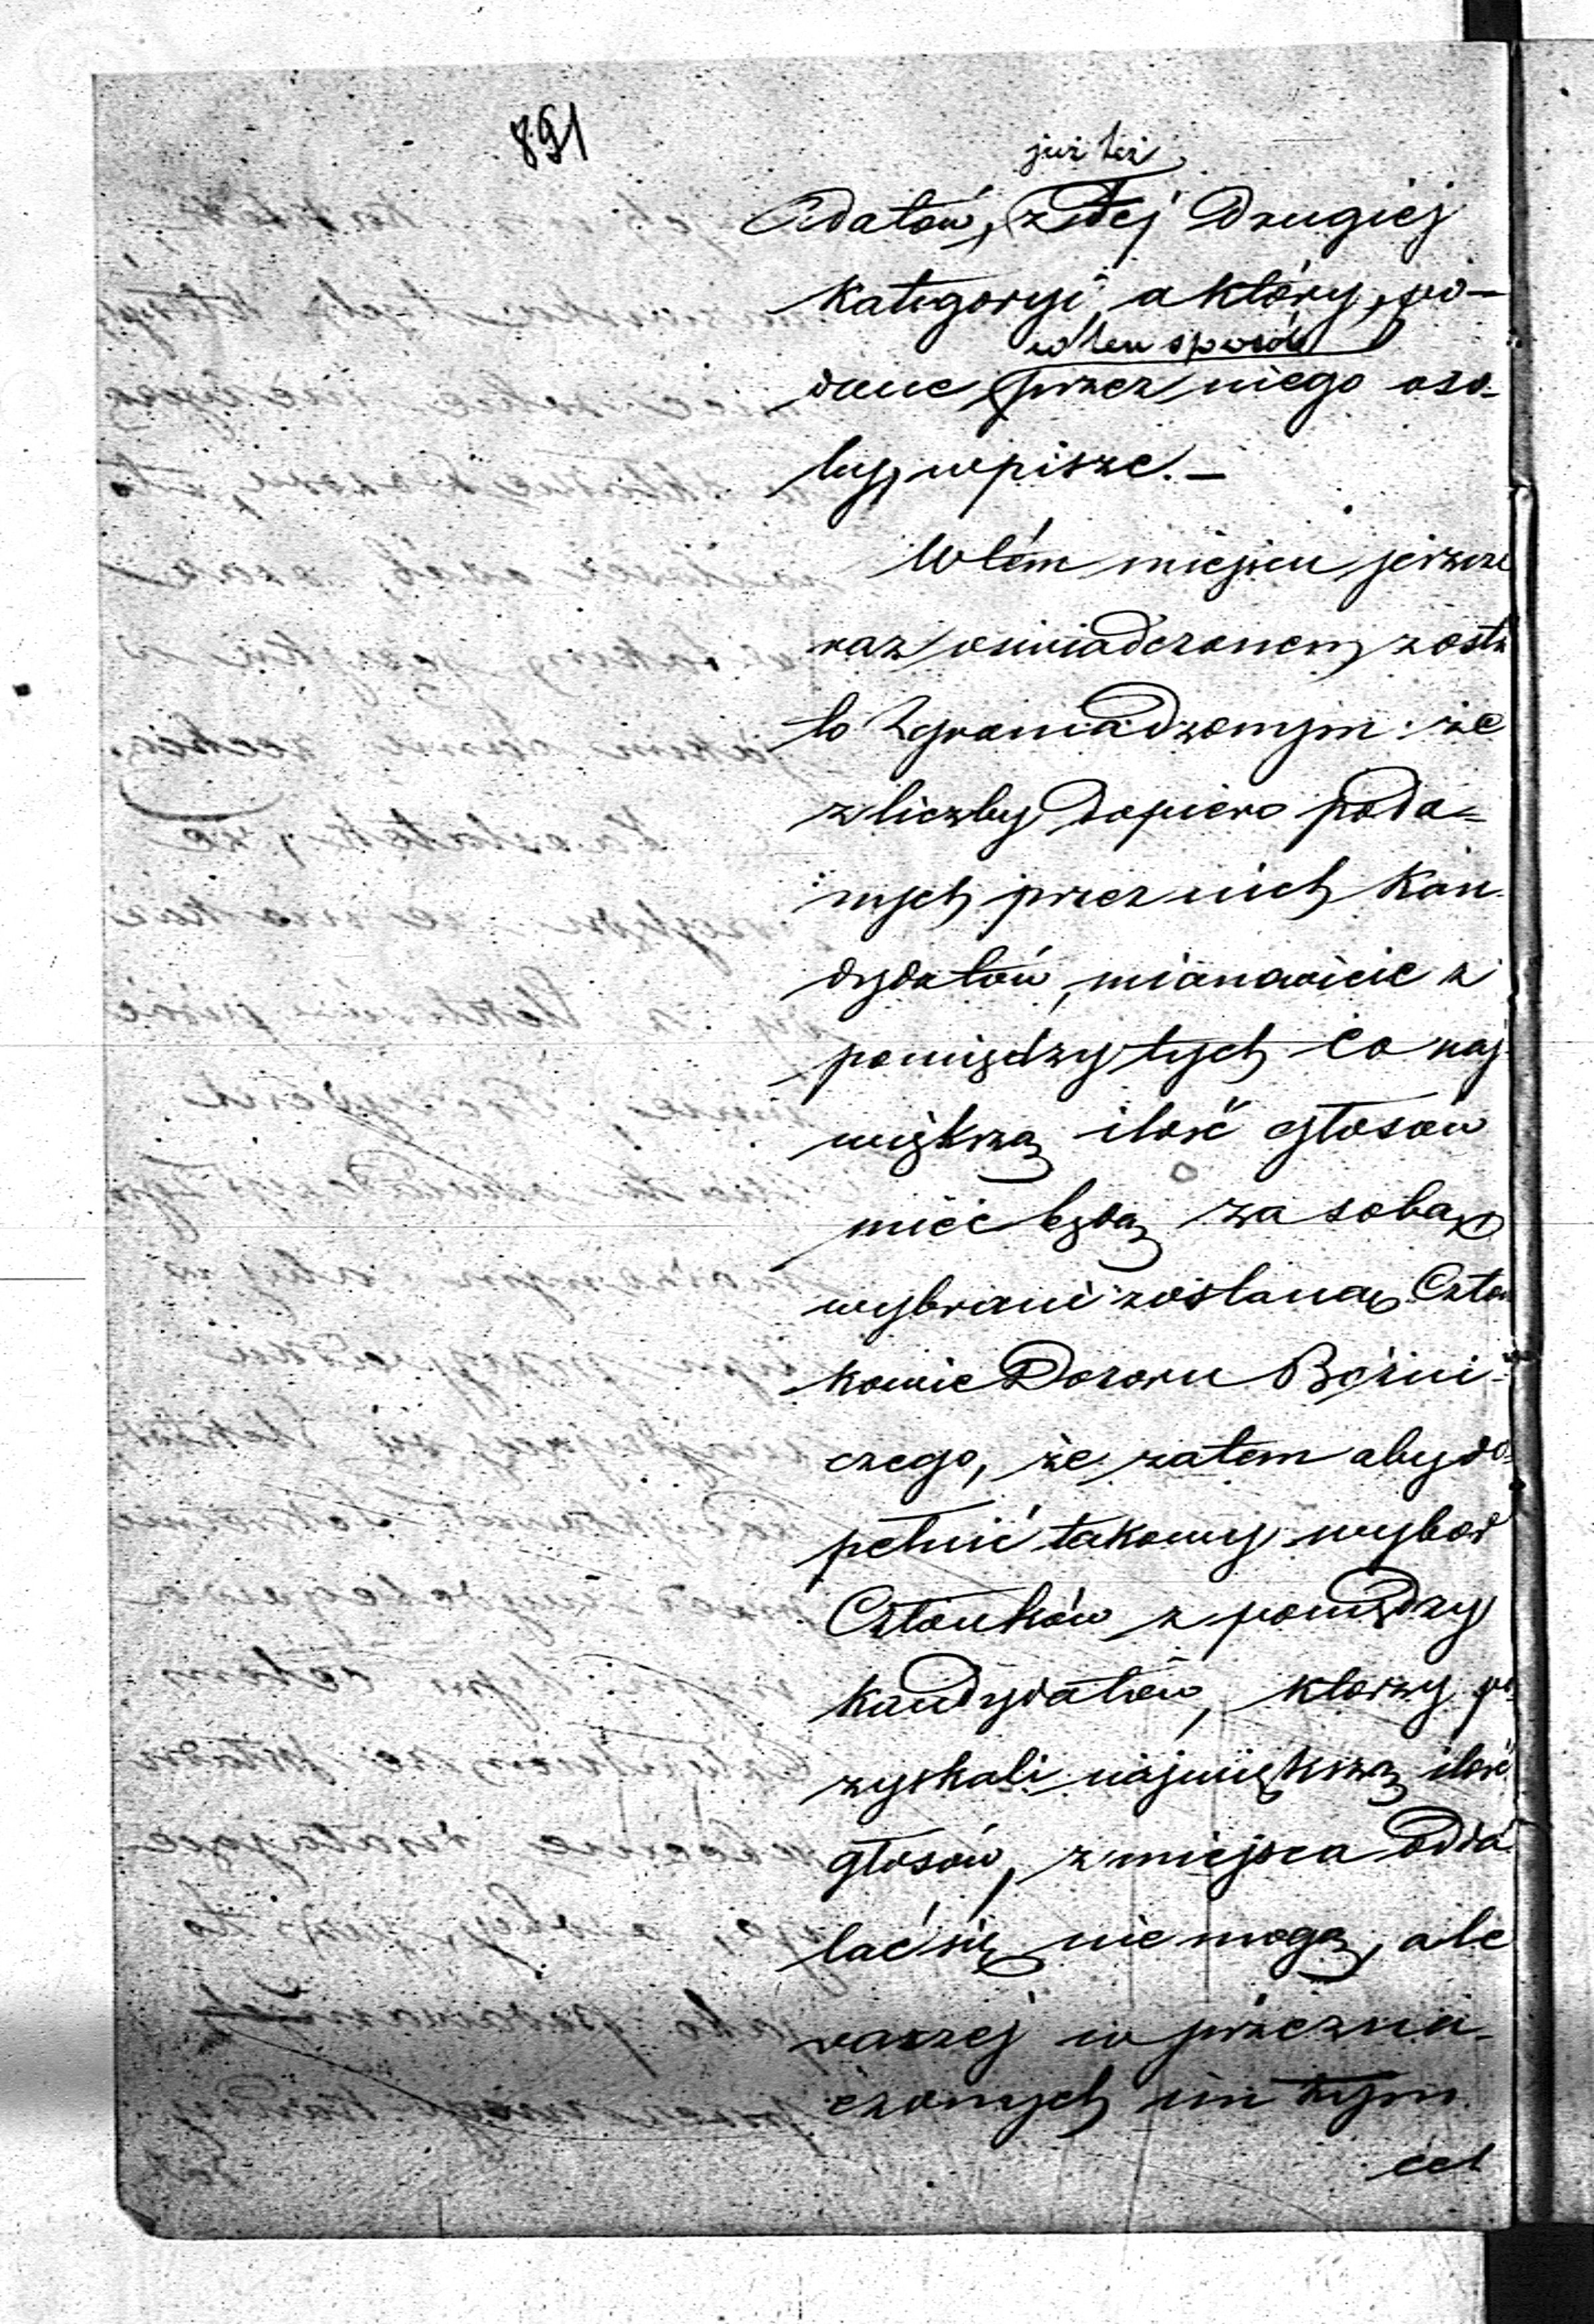 891
już też
datów, z tej drugiej
kategoryi, a który, po-
w ten sposób
dane przez niego oso-
by, wpisze. —
W tém miejscu jeszcze
raz oświadczonem zosta
ło Zgromadzonym: że
z liczby dopiero poda-
nych przez nich Kan-
dydatów, mianowicie z
pomiędzy tych co naj-
większą ilość głosów
mieć będą za sobą,
wybrani zostaną Człon
kowie Dozoru Bożni-
czego, że zatem aby do-
pełnić takowy wybór
Członków z pomiędzy
Kandydatów, którzy po-
zyskali największą ilość
głosów, z miejsca odda-
lać się nie mogą, ale
raczej w przezna-
czonych im tym
cel